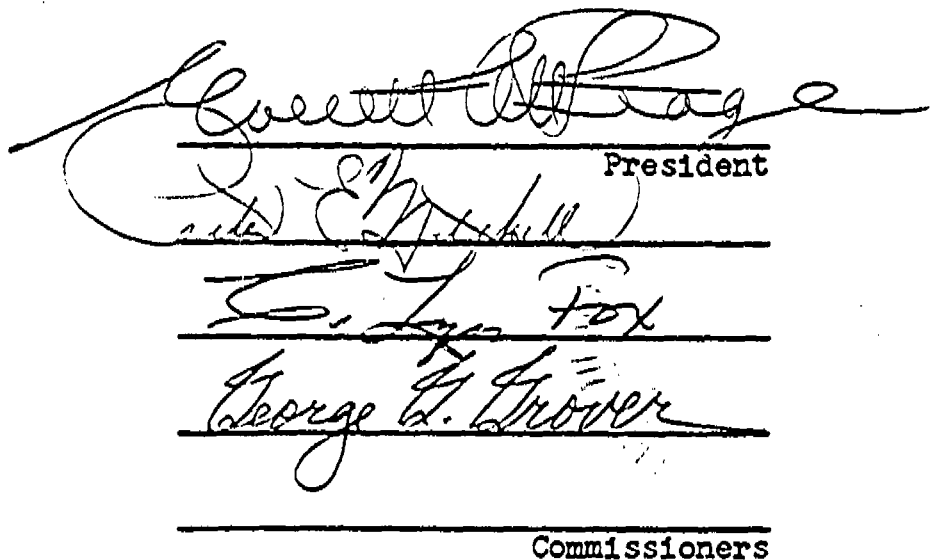 Everett C. McKeage
President
E. Mitchell
C. Lyn Fox
George G. Grover
Commissioners